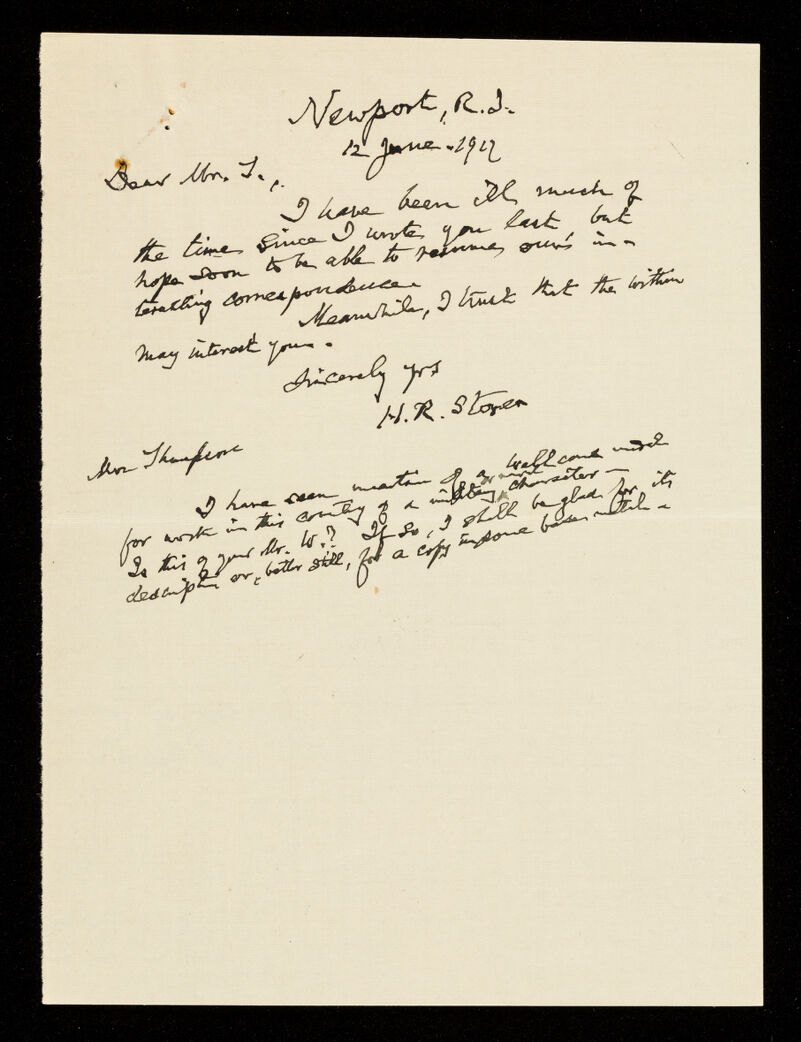 Newport, R.I.
12 June. 1917
Dear Mr. T.,
I have been ill much of
the time since I wrote you last but
hope soon to be able to resume our in-
teresting correspondence.
Meanwhile, I trust that the within
may interest you.
Sincerely yrs
H. R. Storer
Mr. Thompson
I have seen mention of a Wellcome medal
for work in this country of a military character -
Is this of your Mr. W.? If so, I shall be glad for its
description or, better still, for a copy in some base metal.